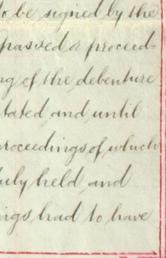 to be signed by the
passed a proceed-
ng of the debenture
tated and until
roceedings of which
uly held and
ngs had to have